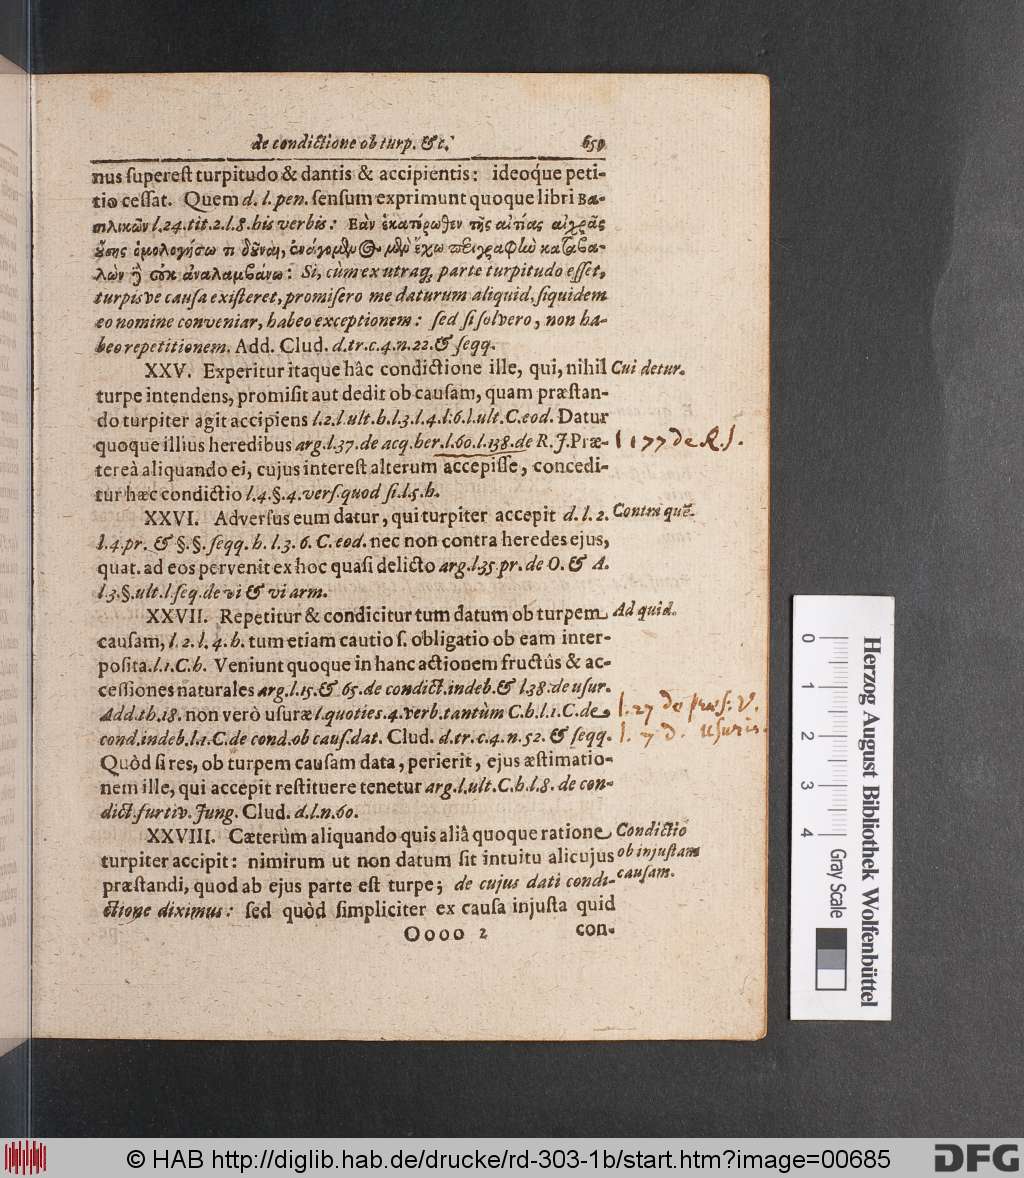 de condictione ob turp. &c. 659
nus superest turpitudo & dantis & accipientis: ideoq́ue peti-
tio cessat. Quem d. l. pen. sensum exprimunt quoque libri Βα-
σιλικῶν l. 24. tit. 2. l. 8. his verbis: Εὰν ἑκατέρωθεν τῆς αἰτίας αἰχρᾶς
ὄυσης ὁμολογήσω τι δῦναι, ἐναγόμενος μὲν ἔχω παραγραφὴν καταβα-
λὼν δὲ οὐκ ἀναλαμβάνω: Si, cùm ex utraq; parte turpitudo esset,
turpisve causa existeret, promisero me daturum aliquid, siquidem
eo nomine conveniar, habeo exceptionem: sed si solvero, non ha-
beo repetitionem. Add. Clud. d. tr. c. 4. n. 22. & seqq.
XXV. Experitur itaque hâc condictione ille, qui, nihil Cui detur.
turpe intendens, promisit aut dedit ob causam, quam præstan-
do turpiter agit accipiens l. 2. l. ult. h. l. 3. l. 4. l. 6. l. ult. C. eod. Datur
quoque illius heredibus arg. l. 37. de acq. her. l. 60. l. 138. de R. J. Præ- l 177 de R. J.
tereà aliquando ei, cujus interest alterum accepisse, concedi-
tur hæc condictio l. 4. §. 4. vers. quod si. l. 5. h.
XXVI. Adversus eum datur, qui turpiter accepit d. l. 2. Contra quē.
l. 4. pr. & §. §. seqq. h. l. 3. 6. C. eod. nec non contra heredes ejus,
quat. ad eos pervenit ex hoc quasi delicto arg. l. 35. pr. de O. & A.
l. 3. §. ult. l. seq. de vi & vi arm.
XXVII. Repetitur & condicitur tum datum ob turpem Ad quid.
causam, l. 2. l. 4. h. tum etiam cautio s. obligatio ob eam inter-
posita. l. 1. C. h. Veniunt quoque in hanc actionem fructûs & ac-
cessiones naturales arg. l. 15. & 65. de condict. indeb. & l. 38. de usur.
Add. th. 18. non verò usuræ l. quoties. 4. verb. tantùm C. h. l. 1. C. de l. 27 de V.
cond. indeb. l. 1. C. de cond. ob caus. dat. Clud. d. tr. c. 4. n. 52. & seqq. l. 7 D. usuris.
Quòd si res, ob turpem causam data, perierit, ejus æstimatio-
nem ille, qui accepit restituere tenetur arg. l. ult. C. h. l. 8. de con-
dict. furtiv. Jung. Clud. d. l. n. 60.
XXVIII. Cæterùm aliquando quis aliâ quoque ratione Condictio
turpiter accipit: nimirum ut non datum sit intuitu alicujus ob injustam
præstandi, quod ab ejus parte est turpe; de cujus dati condi- causam.
ctione diximus: sed quòd simpliciter ex causa injusta quid
Oooo 2 con-
Herzog August Bibliothek Wolfenbüttel
0 1 2 3 4 Gray Scale
© HAB http://diglib.hab.de/drucke/rd-303-1b/start.htm?image=00685
DFG